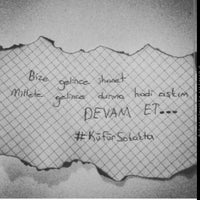 Bize gelince ihanet
Millete gelince durma hadi aşkım
DEVAM ET...
#KüfürSokakta